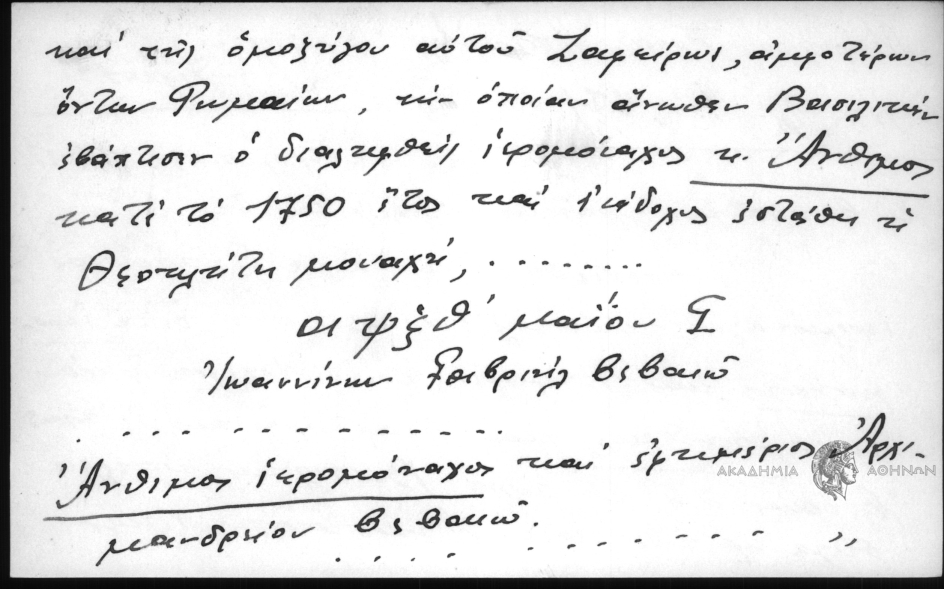 καί τῆς ὁμοζύγου αὐτοῦ Ζαφείρως, ἀμφοτέρων
ὄντων Ρωμαίων, τήν ὁποίαν ἄνωθεν Βασιλικήν
ἐβάπτισεν ὁ διαληφθείς ἱερομόναχος κ. Ἄνθιμος
κατά τό 1750 ἔτος καί ἀνάδοχος ἐστάθη ἡ
Θεοπλάτη μοναχή, .........
αιψξθ' μαΐου
Ἰωαννίνων Γαβριήλ βεβαιῶ
. . . . . . . . . . . . . . .
Ἄνθιμος ἱερομόναχος καί ἐφημέριος Ἀρχι-
μανδρείου βεβαιῶ.
. . . . . . . . . . . . ,,
ΑΚΑΔΗΜΙΑ ΑΘΗΝΩΝ